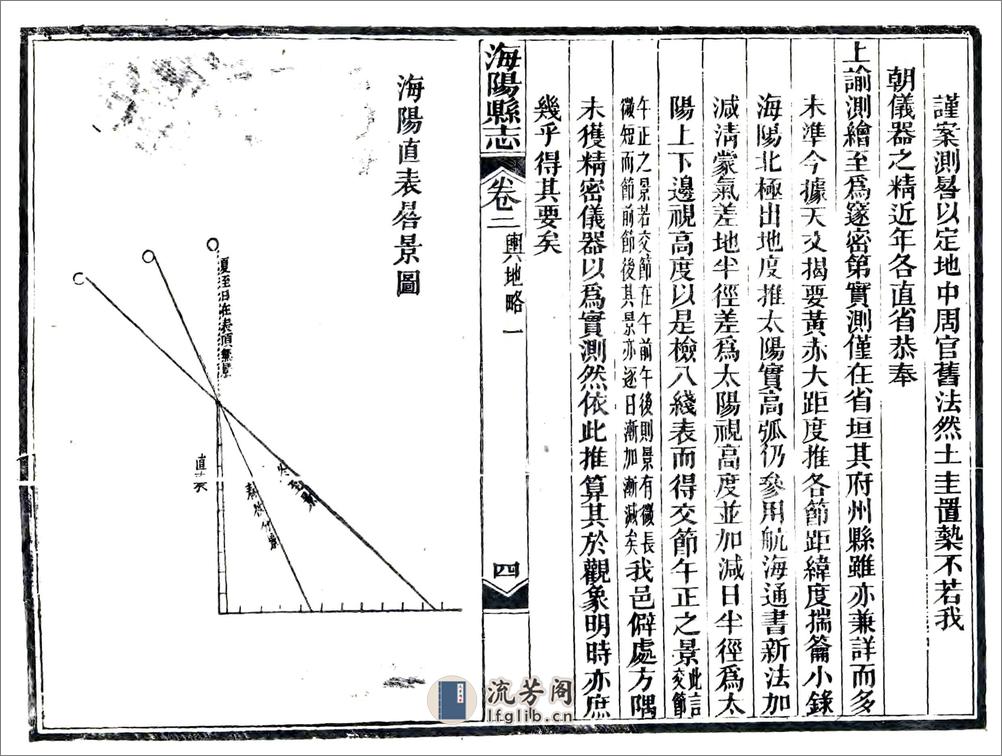 謹案測晷以定地中周官舊法然土圭置槷不若我
朝儀器之精近年各直省恭奉
上諭測繪至為邃密第實測僅在省垣其府州縣雖亦兼詳而多
未準今據天文揭要黃赤大距度推各節距緯度揣籥小錄
海陽北極出地度推太陽實高弧仍參用航海通書新法加
減清蒙氣差地半徑差為太陽視高度並加減日半徑為太
陽上下邊視高度以是檢八綫表而得交節午正之景此言交節
午正之景若交節在午前午後則景有微長
微短而節前節後其景亦逐日漸加漸減矣我邑僻處方隅
未獲精密儀器以為實測然依此推算其於觀象明時亦庶
幾乎得其要矣
海陽縣志
卷二
輿地略一
四
海陽直表晷景圖
夏至日在表頂無景
直表
春秋分景
冬至景
流芳阁
lfglib.cn